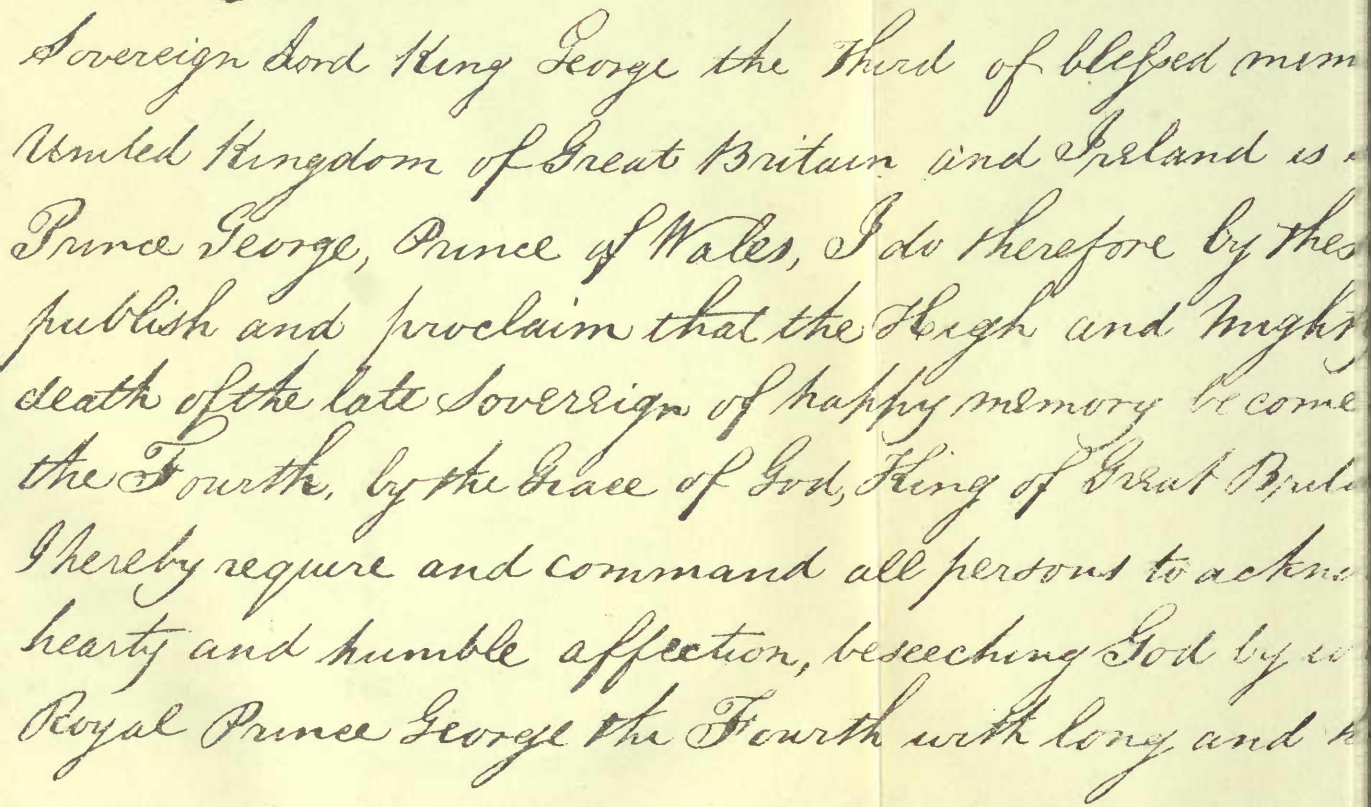 Sovereign Lord King George the Third of blessed mem
United Kingdom of Great Britain and Ireland is
Prince George, Prince of Wales, I do therefore by thes
publish and proclaim that the High and Mighty
death of the late Sovereign of happy memory become
the Fourth, by the Grace of God, King of Great Brita
I hereby require and command all persons to ackno
hearty and humble affection, beseeching God by w
Royal Prince George the Fourth with long and h